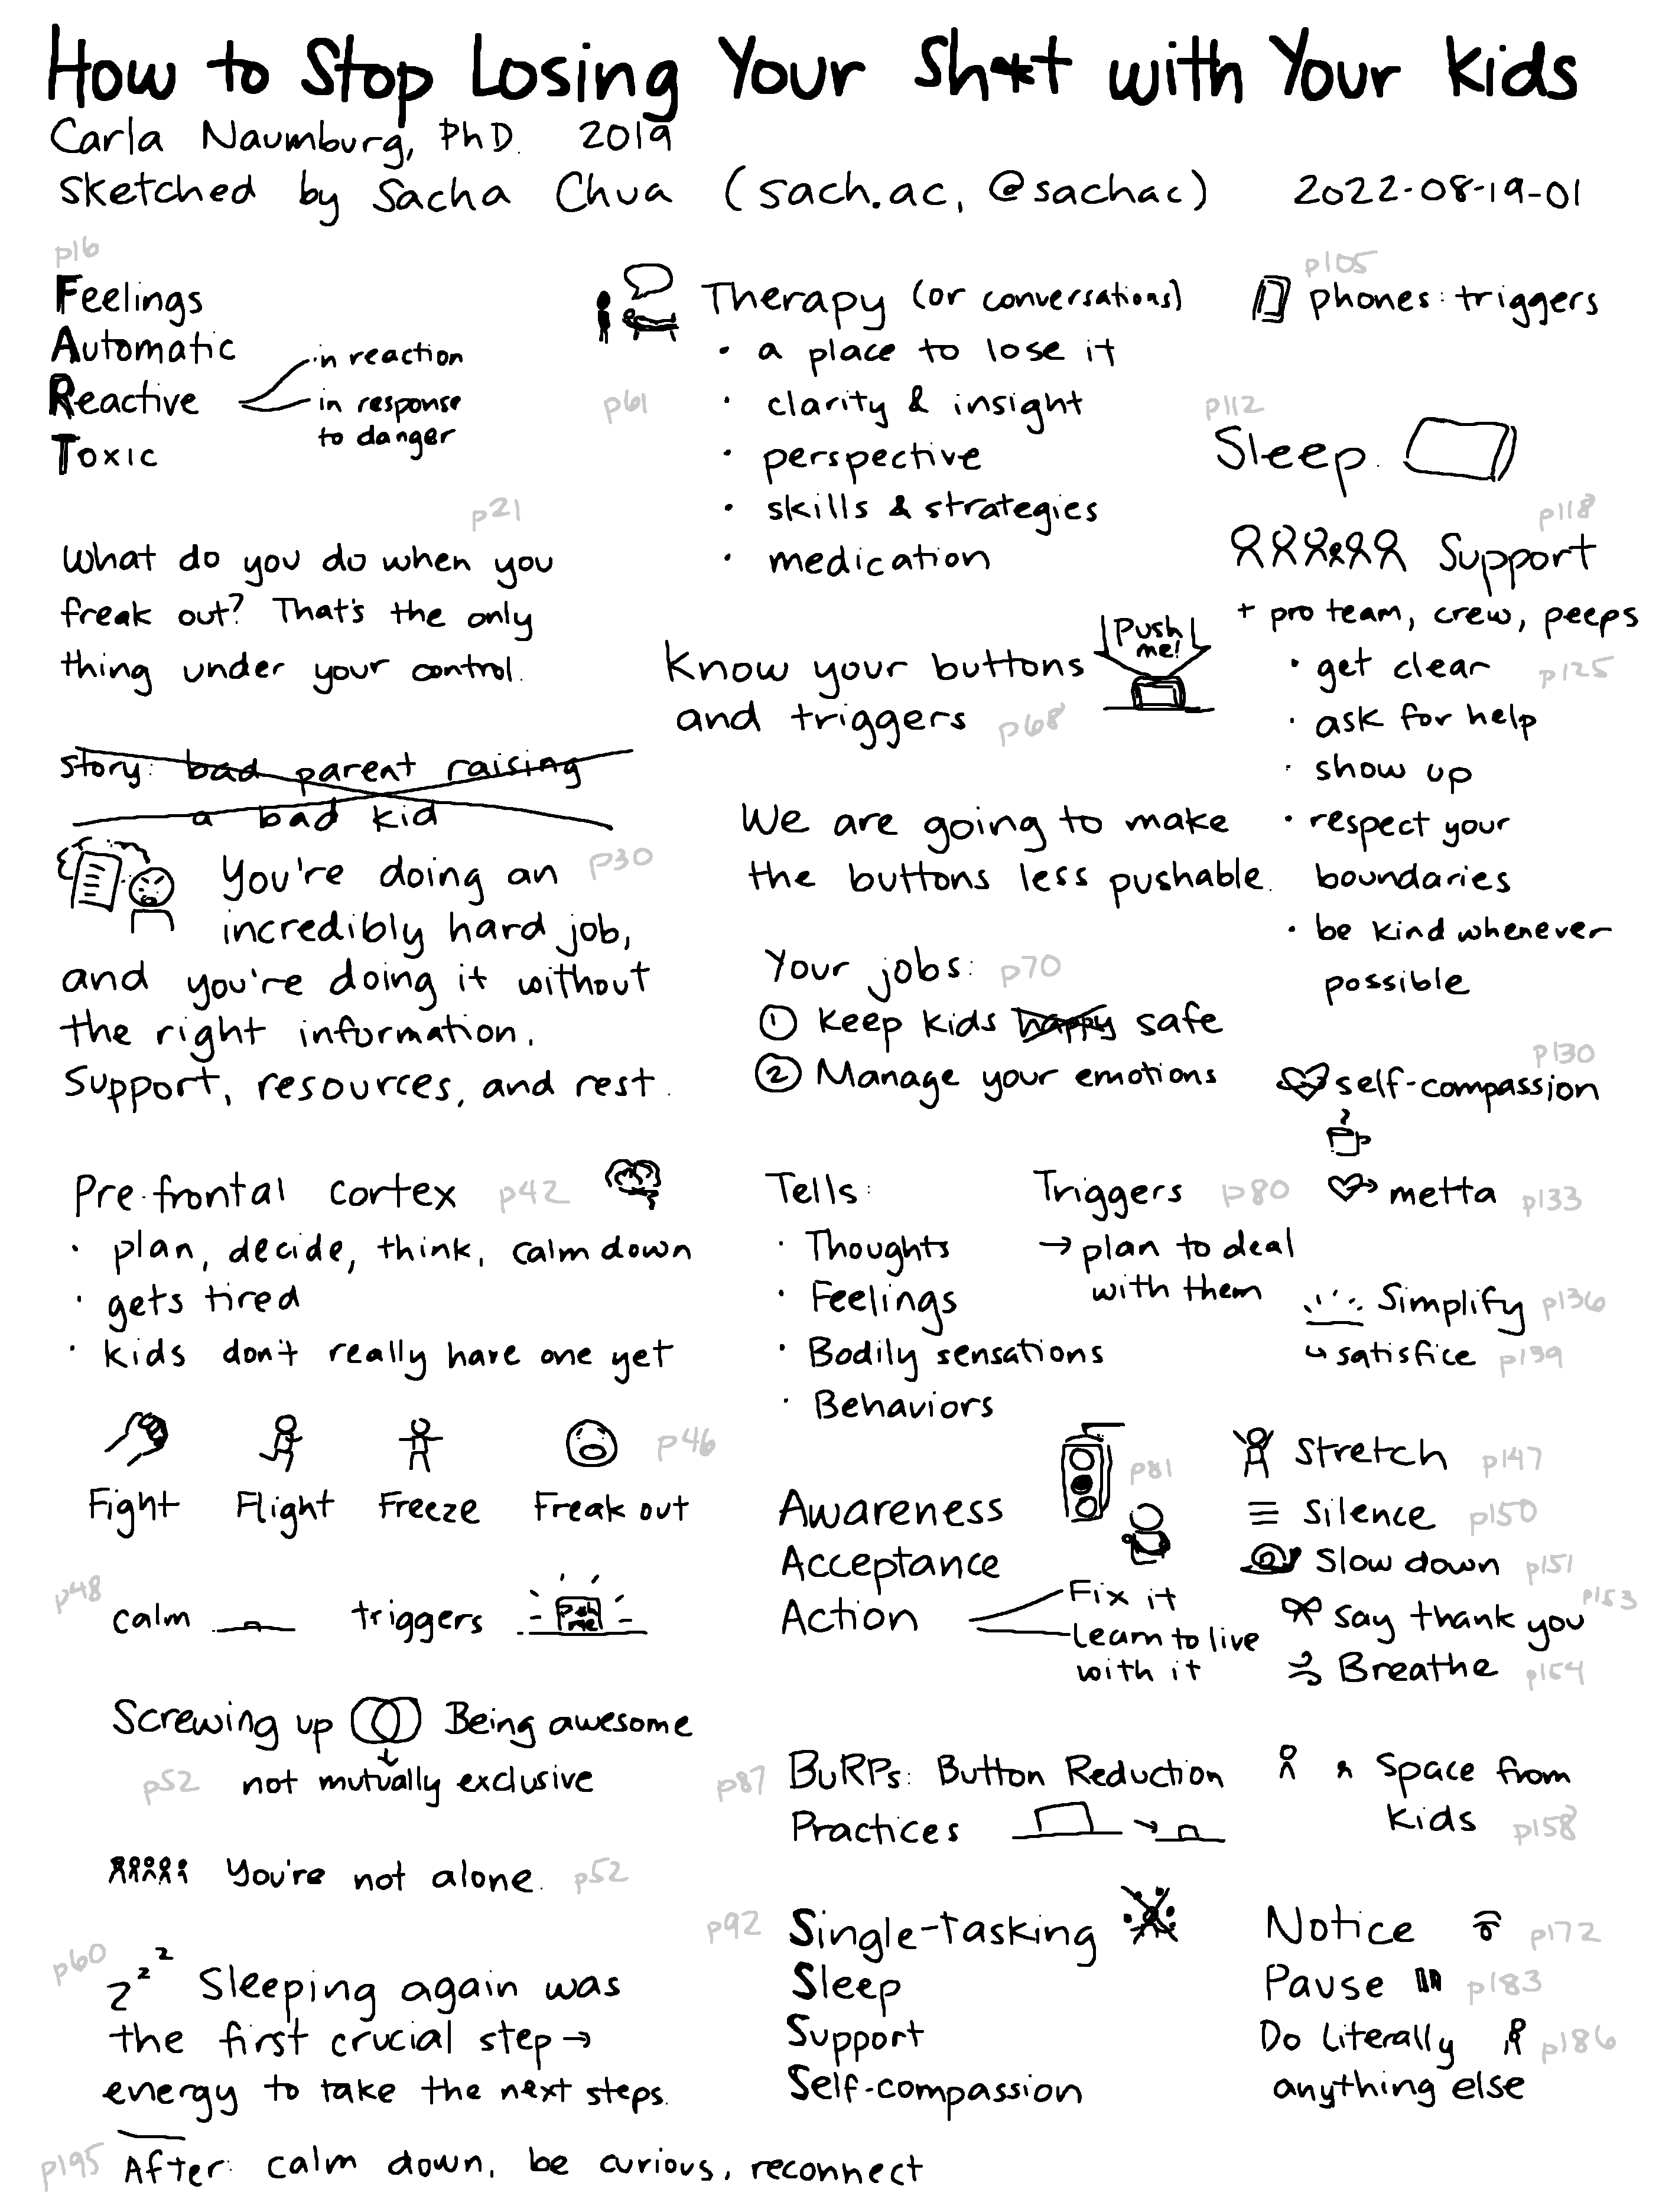 How to Stop Losing Your Sh*t with Your Kids
Carla Naumburg, PhD. 2019
Sketched by Sacha Chua (sach.ac, @sachac) 2022-08-19-01
p16
Feelings
Automatic
Reactive
Toxic
in reaction
in response
to danger
p21
What do you do when you
freak out? That's the only
thing under your control.
story: bad parent raising
a bad kid
You're doing an p30
incredibly hard job,
and you're doing it without
the right information.
Support, resources, and rest.
Pre-frontal cortex p42
· plan, decide, think, calm down
· gets tired
· kids don't really have one yet
p46
Fight Flight Freeze Freak out
p48
calm triggers
Push
me!
Screwing up Being awesome
p52 not mutually exclusive
You're not alone. p52
p60
zzz Sleeping again was
the first crucial step →
energy to take the next steps.
p195 After: calm down, be curious, reconnect
Therapy (or conversations)
· a place to lose it
p61 · clarity & insight
· perspective
· skills & strategies
· medication
Know your buttons
and triggers p68
Push
me!
We are going to make
the buttons less pushable.
Your jobs: p70
① Keep kids happy safe
② Manage your emotions
Tells:
· Thoughts
· Feelings
· Bodily sensations
· Behaviors
Triggers p80
→ plan to deal
with them
p81
Awareness
Acceptance
Action
Fix it
Learn to live
with it
p87 BuRPs: Button Reduction
Practices
p92 Single-tasking
Sleep
Support
Self-compassion
p105
phones: triggers
p112
Sleep.
p118
Support
+ pro team, crew, peeps
· get clear p125
· ask for help
· show up
· respect your
boundaries
· be kind whenever
possible
p130
self-compassion
metta p133
Simplify p136
↳ satisfice p139
Stretch p147
Silence p150
Slow down p151
say thank you p153
Breathe p154
Space from
kids p158
Notice p172
Pause p183
Do literally p186
anything else